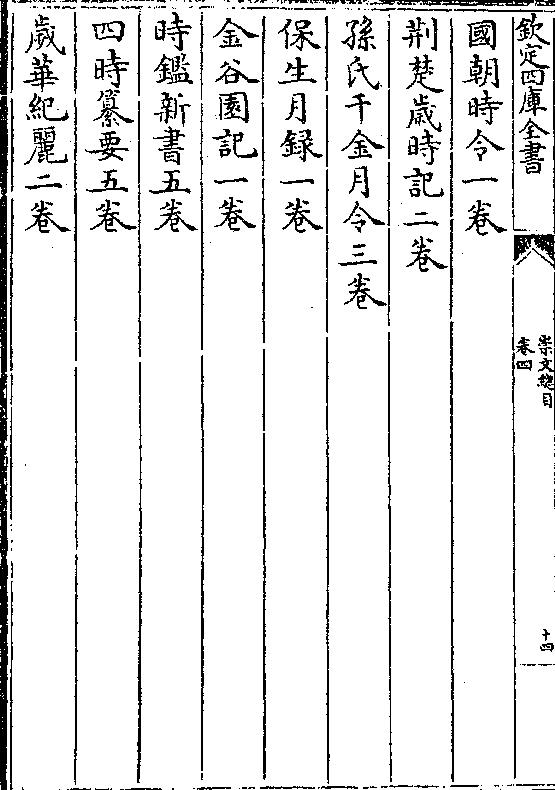 欽定四庫全書
崇文總目
卷四
十四
國朝時令一卷
荆楚歲時記二卷
孫氏千金月令三卷
保生月録一卷
金谷園記一卷
時鑑新書五卷
四時纂要五卷
歲華紀麗二卷